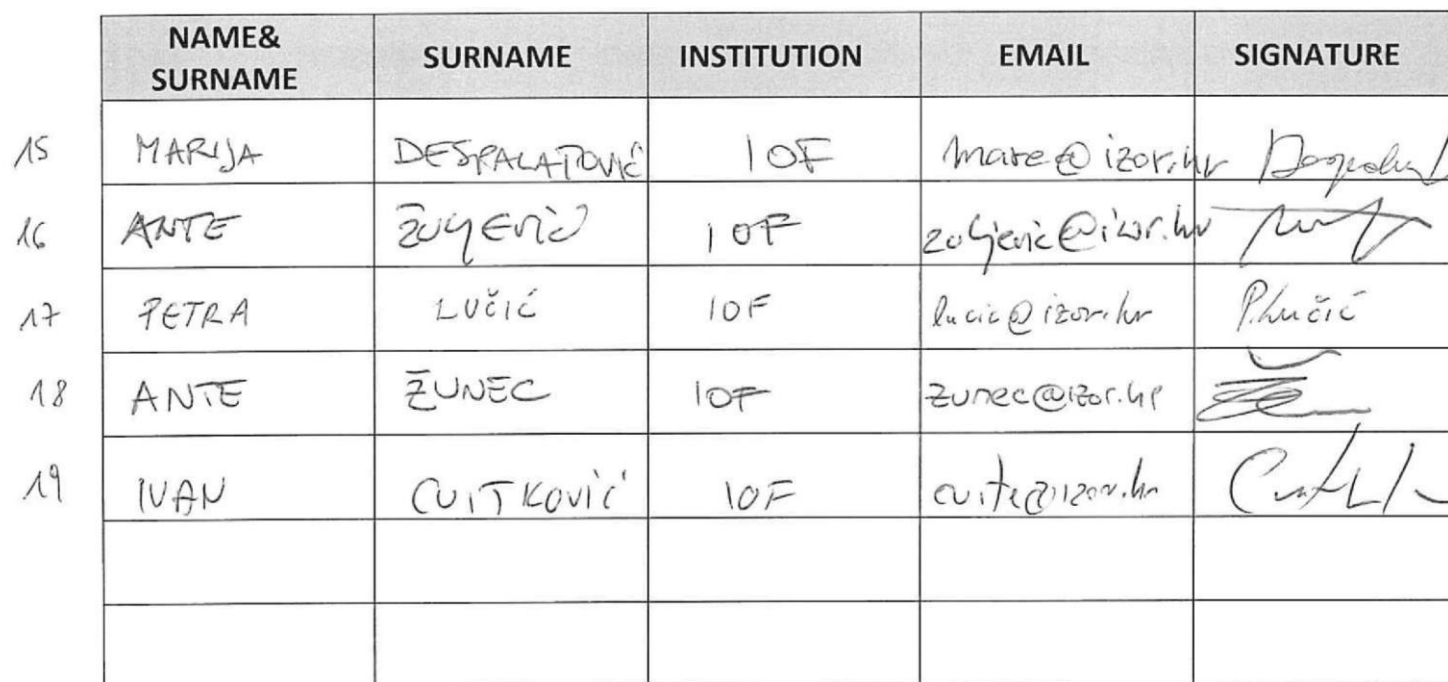 NAME& SURNAME SURNAME INSTITUTION EMAIL SIGNATURE
15 MARIJA DESPALATOVIĆ IOF mare@izor.hr
16 ANTE ŽULJEVIĆ IOF zuljevic@izor.hr
17 PETRA LUČIĆ IOF lucic@izor.hr P.Lučić
18 ANTE ŽUNEC IOF zunec@izor.hr
19 IVAN CVITKOVIĆ IOF cvite@izor.hr